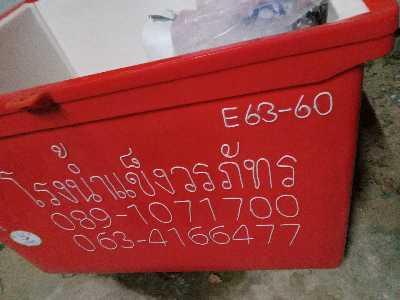 E63-60
โรงน้ำแข็งวรภัทร
089-1071700
063-4166477